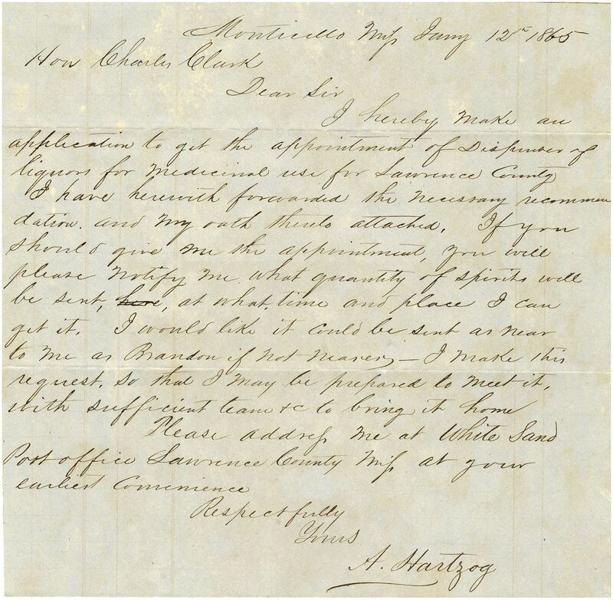 Monticello Miss Jany 12th 1865
Hon Charles Clark
Dear Sir
I hereby make an
application to get the appointment of Dispenser of
liquors for medicinal use for Lawrence County
I have herewith forwarded the necessary recommen
dation. and my oath thereto attached. If you
should give me the appointment, you will
please notify me what quantity of spirits will
be sent, here, at what time and place I can
get it. I would like it could be sent as near
to me as Brandon if not nearer, — I make this
request, so that I may be prepared to meet it,
with sufficient team &c to bring it home
Please address me at White Sand
Post office Lawrence County Miss at your
earliest convenience
Respectfully
Yours
A. Hartzog